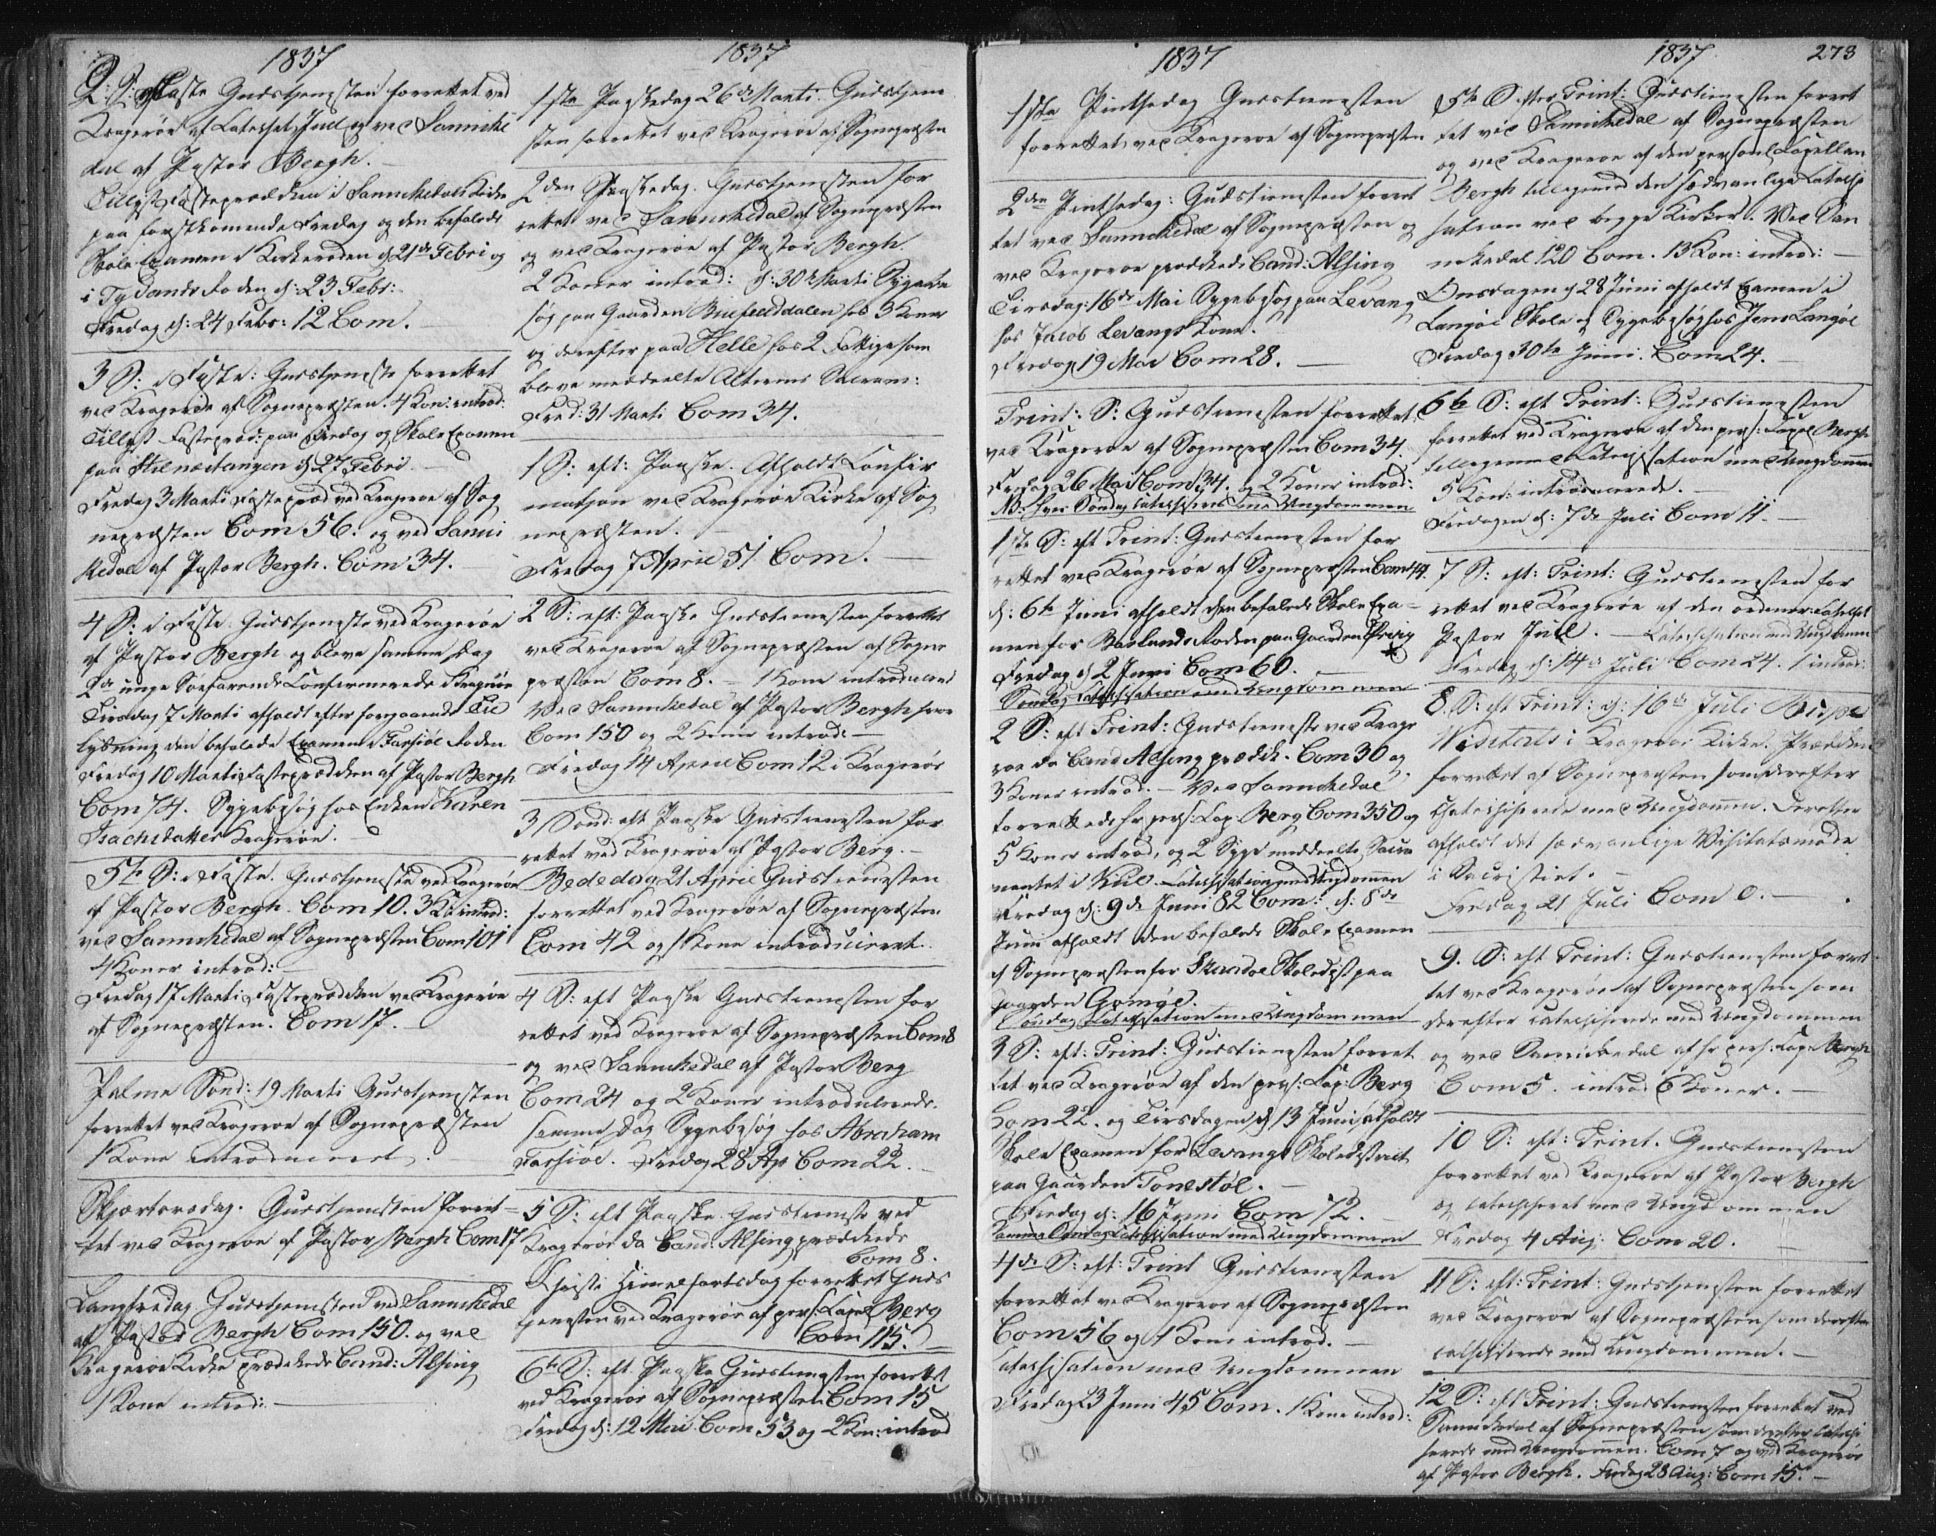 1837
2. S: i Faste Gudstjenesten forrettet ved
Kragerøe af Catechet Juel og ved Sannike
dal af Pastor Bergh.
Tillyst Fasteprædiken i Sannikedals Kirke
paa förstkommende Fredag og den befalede
Skole Examen i Kirkeroden d. 21de Febri og
i Tydands Roden d: 23 Febr:
Fredag d: 24 Febr: 12 Com.
3 S: i Faste: Gudstjeneste forrettet
ved Kragerøe af Sognepræsten. 4 Kon: introd:
Tillyst Fastepræd: paa Fredag og Skole Examen
paa Steenstangen d. 27 Febri.
Fredag 3 Marti Fastepræd ved Kragerøe af Sog
nepræsten Com 56. og ved Sanni
kedal af Pastor Bergh. Com 34.
4 S: i Faste. Gudstjeneste ved Kragerøe
af Pastor Bergh og bleve samme Dag
2de unge Søefarende Confirmerede i Kragerøe
Tirsdag 7 Marti afholdt efter foregaaende Til
lysning den befalede Examen i Farsiøe Roden
Fredag 10 Marti Fasteprædiken af Pastor Bergh
Com 74. Sygebesøg hos Enken Karen
Isachsdatter Kragerøe.
5te S: i Faste. Gudstjeneste ved Kragerøe
af Pastor Bergh. Com 10. 3 Ko: introd:
ved Sannikedal af Sognepræsten Com 101
4 Koner introd:
Fredag 17 Marti Fasteprædiken ved Kragerøe
af Sognepræsten. Com 17.
Palme Sönd: 19 Marti Gudstjenesten
forrettet ved Kragerøe af Sognepræsten
1 Kone introduceret.
Skjærtorsdag. Gudstjenesten forret=
tet ved Kragerøe af Pastor Bergh Com 17
Langfredag Gudstjenesten ved Sannikedal
af Pastor Bergh Com 150. og ved
Kragerøe Kirke prædikede Cand: Alsing
1 Kone introd:
1837
1ste Paaskedag 26de Marti. Gudstjene
sten forrettet ved Kragerøe af Sognepræsten
2den Paaskedag. Gudstjenesten for
rettet ved Sannikedal af Sognepræsten
og ved Kragerøe af Pastor Bergh.
2 Koner introd: d: 30te Marti Sygebe
søg paa Gaarden hos 3 Koner
og derefter paa Helle hos 2 Fattige som
bleve meddeelte Alterens Sacram:
Fred: 31 Marti Com 34.
1 S: eft: Paaske. Afholdt Confir
mation ved Kragerøe Kirke af Sog
nepræsten.
Fredag 7 April 51 Com.
2 S: eft: Paaske Gudstienesten forrettet
ved Kragerøe af Sognepræsten af Sogne
præsten Com 8. 1 Kone introduceret
Ved Sannikedal af Pastor Bergh hvor
Com 150 og 2 Koner introd:
Fredag 14 April Com 12 i Kragerøe
3 Sönd: eft Paaske Gudstienesten for
rettet ved Kragerøe af Pastor Berg.
Bededag 21 April Gudstienesten
forrettet ved Kragerøe af Sognepræsten
Com 42 og 1 Kone introduceret.
4 S: eft Paaske Gudstienesten for
rettet ved Kragerøe af Sognepræsten Com 8
og ved Sannikedal af Pastor Berg
Com 24 og 2 Koner introducerede.
Samme Dag Sygebesøg hos Abraham
Farsiøe. Fredag 28 Ap Com 22.
5 S: eft Paaske. Gudstieneste ved
Kragerøe da Cand: Alsing prædikede
Com 8.
Christi Himmelfartsdag forrettet Guds
tjenesten ved Kragerøe af pers: Capel Berg
Com 115.
6te S: eft Paaske Gudstienesten forrettet
ved Kragerøe af Sognepræsten Com 15
Fredag d: 12 Mai Com 53 og 2 Kon: introd
1837
1ste Pintsedag Gudstienesten
forrettet ved Kragerøe af Sognepræsten
2den Pintsedag: Gudstienesten forret
tet ved Sannikedal af Sognepræsten og
ved Kragerøe prædikede Cand: Alsing
Tirsdag 16de Mai Sygebesøg paa Levang
hos Jacob Levangs Kone.
Fredag 19 Mai Com 28.
Trint: S: Gudstienesten forrettet
ved Kragerøe af Sognepræsten Com 34.
Fredag 26 Mai Com 34. og 2 Koner introd:
NB. hver Søndag catechiseres med Ungdommen
1ste S: eft Trint: Gudstienesten for
rettet ved Kragerøe af Sognepræsten Com 44.
d: 6te Juni afholdt den befalede Skole Exa=
men for Barlands Roden paa Gaarden
Fredag d 2 Juni Com 60.
Søndag Catechisation med Ungdommen
2 S: eft Trint: Gudstieneste ved Krage
røe da Cand Alsing prædik. Com 30 og
3 Koner introd. Ved Sannikedal
forrettede hr pers: Cap Berg Com 350 og
5 Koner introd, og 2 Syge meddeelte Sacra
mentet i Kiil. Catechisation med Ungdommen
Fredag d: 9de Juni 82 Com: d: 8de
Juni afholdt den befalede Skole Examen
af Sognepræsten for Skaadøe Skoledist paa
Gaarden Gomøe.
Søndag Catechisation med Ungdommen
3 S: eft: Trint: Gudstienesten forret
tet ved Kragerøe af den pers: Cap: Berg
Com 22. og Tirsdagen d 13 Juni afholdt
Skole Examen for Levangs Skoledistrict
paa Gaarden Tonestøl.
Fredag d: 16 Juni Com 72.
Samme Søndag Catechisation med Ungdommen
4de S: eft: Trint Gudstienesten
forrettet ved Kragerøe af Sognepræsten
Com 56 og 1 Kone introd.
Catechisation med Ungdommen
Fredag 23 Juni 45 Com. 1 Kone introd:
1837. 273
5te S: efter Trint: Gudstienesten forret
tet ved Sannikedal af Sognepræsten
og ved Kragerøe af den personl Capellan
Bergh tilligemed den sædvanlige Catechi
sation ved begge Kirker. Ved San
nikedal 120 Com. 13 Kon: introd:
Onsdagen d 28 Juni afholdt Examen i
Langøe Skole og Sygebesøg hos Jens Langøe
Fredag 30te Juni. Com 24.
6te S: eft Trint: Gudstienesten
forrettet ved Kragerøe af den pers: Capel Bergh
tilligemed Catechisation med Ungdommen
5 Kon: introducerede.
Fredagen d: 7de Juli Com 11.
7 S: eft: Trint: Gudstienesten for
rettet ved Kragerøe af den ordener: Catechet
Pastor Juel. Catechisation med Ungdommen
Fredag d: 14de Juli Com 24. 1 introd:
8 S: eft Trint: d: 16de Juli Bispe
Visitats i Kragerøe Kirke. Prædiken
forrettet af Sognepræsten som derefter
Catechiserede med Ungdommen. Derefter
afholdt det sædvanlige Visitatsmøde
i Sacristiet.
Fredag 21 Juli Com 0.
9. S: eft Trint: Gudstienesten forret
tet ved Kragerøe af Sognepræsten som
derefter catechiserede med Ungdommen
og ved Sannikedal af hr pers: Cap: Bergh
Com 5. introd 6 Koner.
10 S: eft: Trint. Gudstienesten
forrettet ved Kragerøe af Pastor Bergh
og catechiseret med Ungdommen
Fredag 4 Aug: Com 20.
11 S: eft: Trint: Gudstjenesten forrettet
ved Kragerøe af Sognepræsten som derefter
catechiserede med Ungdommen.
12 S: eft Trint: Gudstienesten forrettet ved
Sannikedal af Sognepræsten som derefter catechi
serede med Ungdommen. Com 7 og ved Kragerøe
af Pastor Bergh. Fredag 28 Aug: Com 15.